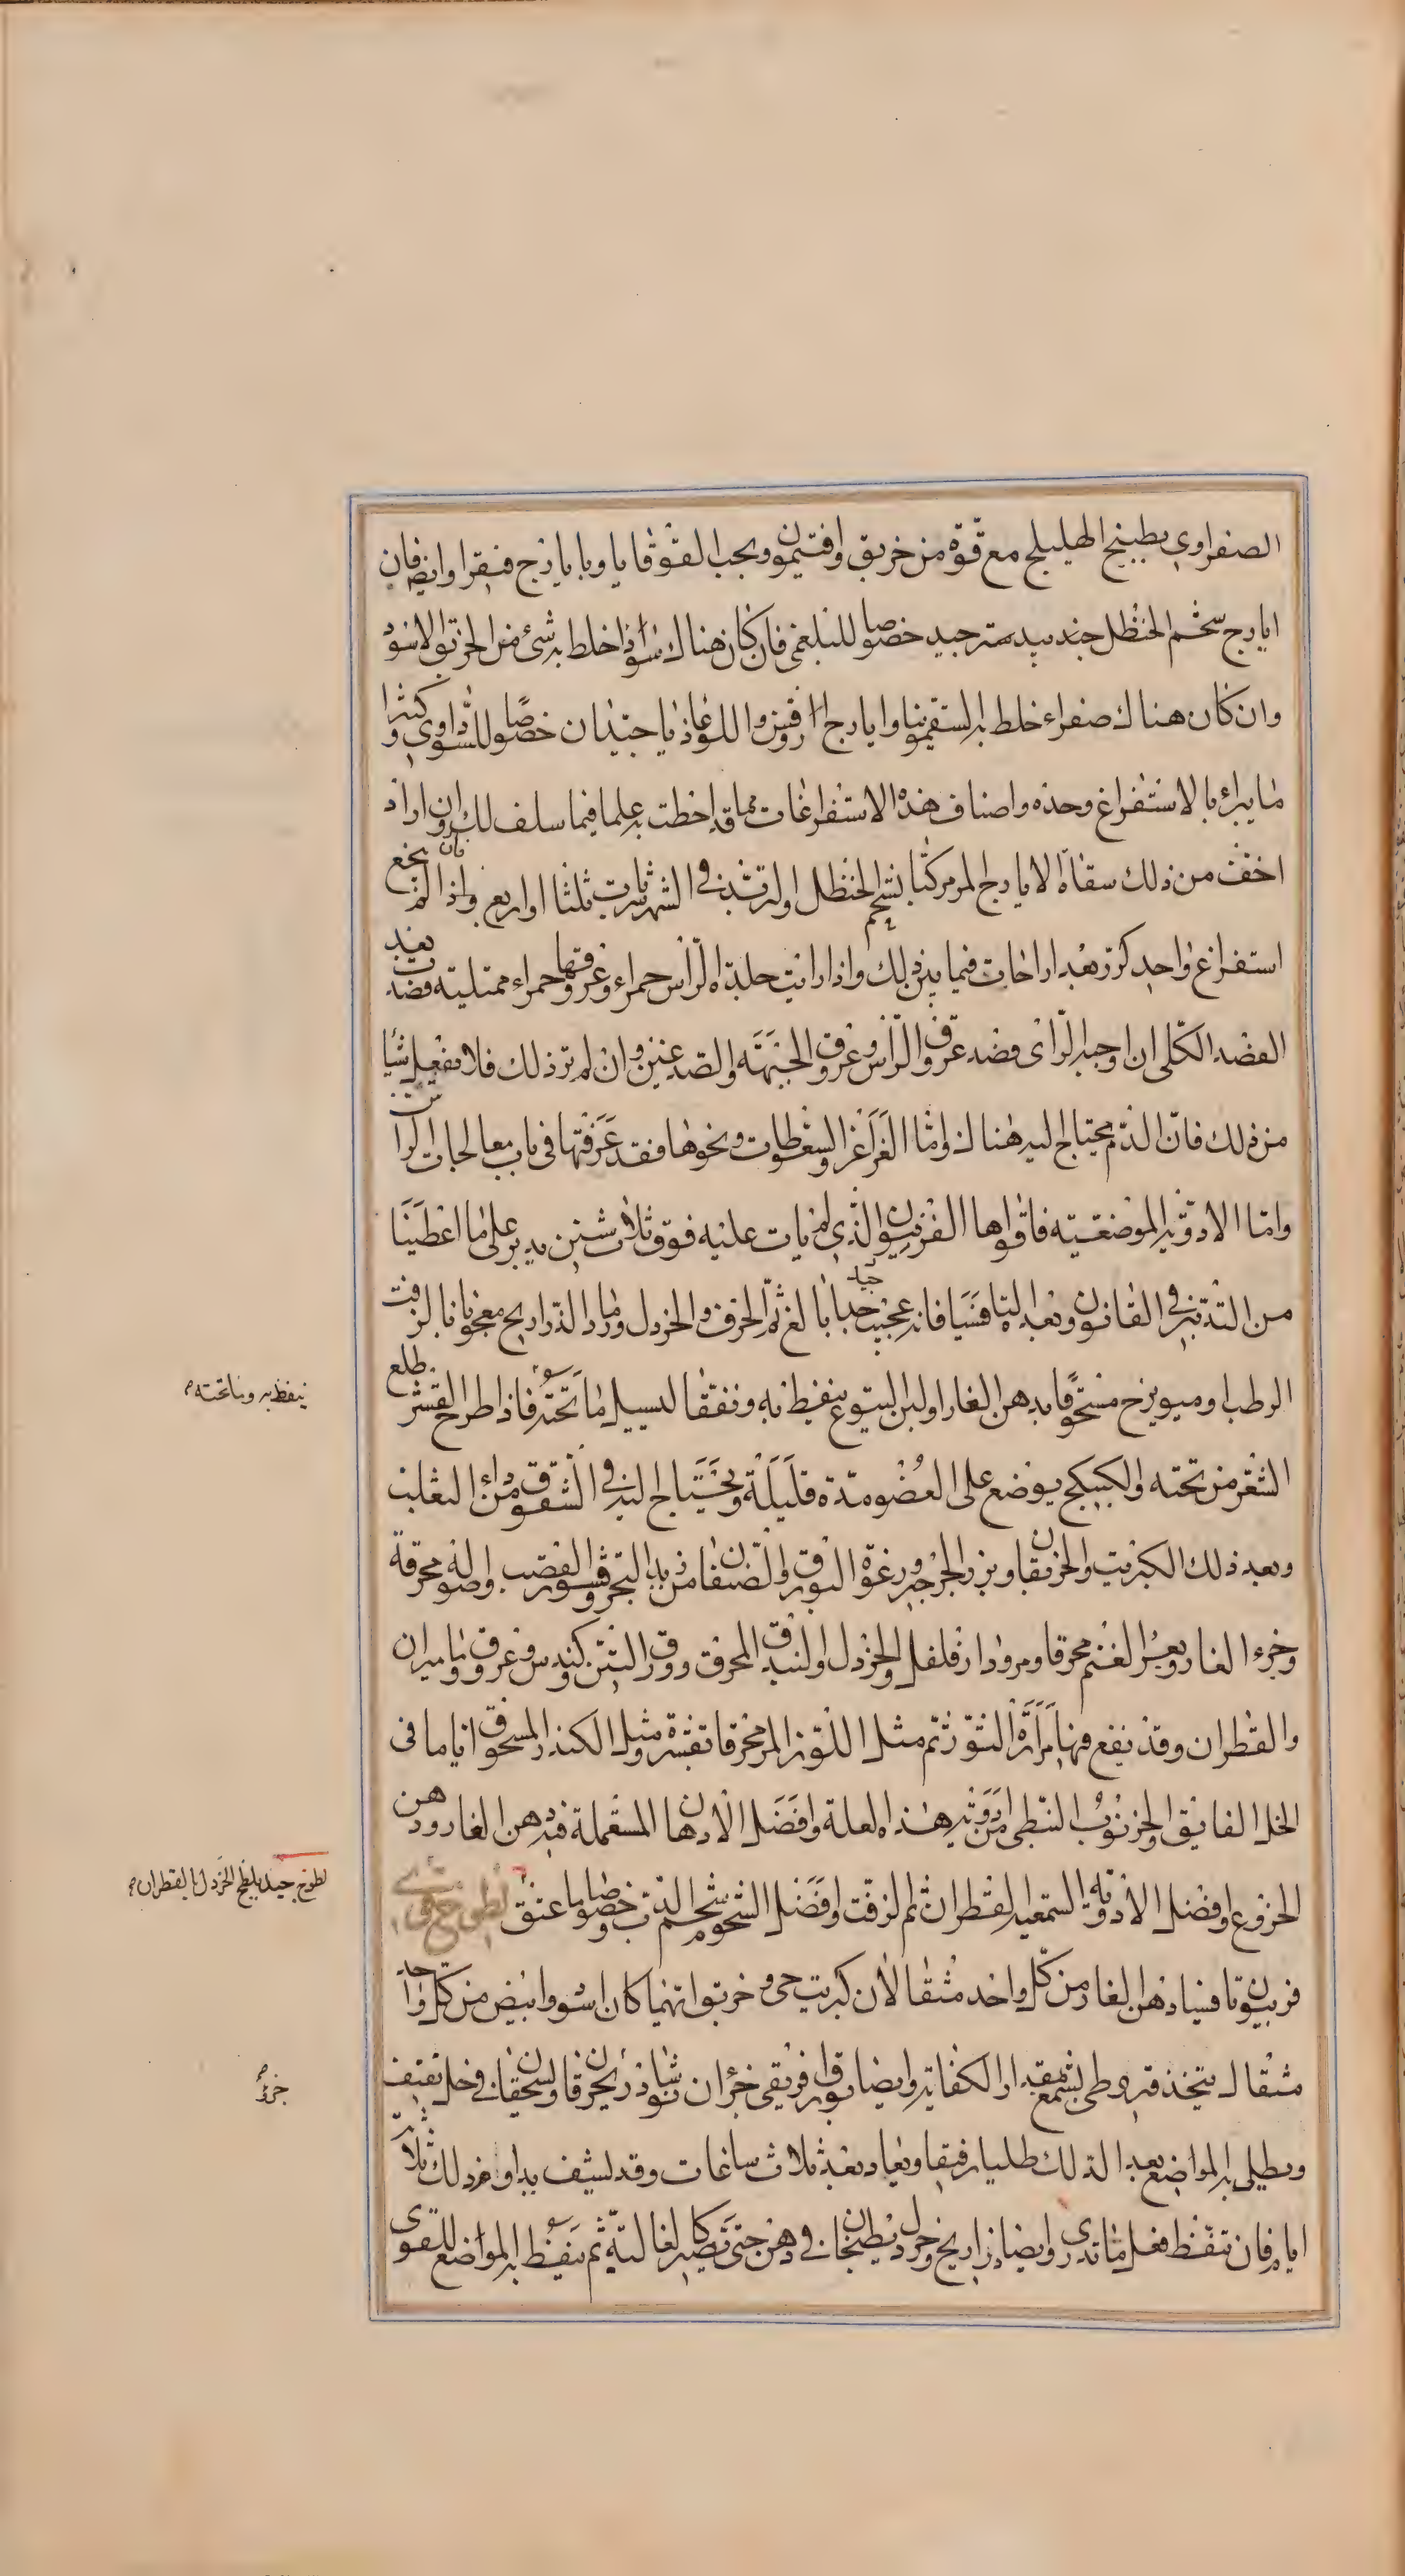 الصفراوي بطبيخ الهليلج مع قوة من خربق وافتيمون وبحب القوقايا وبايارج فيقرا وايضا فان
ايارج شحم الحنظل جندبيدستر جيد خصوصا للبلغمي فان كان هناك سوداء خلط به شئ من الخربق الاسود
وان كان هناك صفراء خلط به السقمونيا وايارج اروفس واللوغاذيا جيدان خصوصا للسوداوي وكثيرا
ما يبراء بالاستفراغ وحده واصناف هذه الاستفراغات مما قد احطت به علما فيما سلف لك وان اراد
اخف من ذلك سقاه الايارج المر مركبا بشحم الحنظل او التربد في الشهر مرات ثلثا او اربع واذا لم ينجع
استفراغ واحد كرر بعد اراحات فيما بين ذلك واذا رايت جلدة الراس حمراء وعروقها حمراء ممتلئة فصدت بعد
الفصد الكلي ان اوجبه الراى فصد عروق الراس وعرق الجبهة والصدغين وان لم تر ذلك فلا تفعل شيئا
من ذلك فان الدم يحتاج اليه هناك واما الغراغر والسعوطات ونحوها فقد عرفتها في باب معالجات الراس
واما الادوية الموضعية فاقواها الفربيون الذي لم يات عليه فوق ثلاث سنين يدبر على ما اعطينا
من التدبير في القانون وبعده التافسيا فانه عجيب جدا بالغ ثم الحرف والخردل ورماد الذراريح معجونا بالزفت
الرطب او ميويزج مسحوقا بدهن الغار او لبن اليتوع ينفط به ونفقا ليسيل ما تحته فاذا طرح القشر طلع
الشعر من تحته والكبيكج يوضع على العضو مدة قليلة ويحتاج اليه في الشقوق من داء الثعلب
وبعد ذلك الكبريت والخربقان وبزر الجرجير ورغوة البورق والصنفان من زبد البحر وقشور القصب واصوله محرقة
وخرء الفار وبعر الغنم محرقا ومرودار فلفل والخردل والبندق المحرق وورق التين وكندس وعروق وماميران
والقطران وقد ينفع فيها مرارة الثور ثم مثل اللوز المر محرقا بقشره ومثل الكندر المسحوق اياما في
الخل الفايق والخرنوب النبطي من ادوية هذه العلة وافضل الادهان المستعملة فيه دهن الغار ودهن
الخروع وافضل الادوية المستعملة القطران ثم الزفت وافضل الشحوم شحم الدب وخصوصا ما عتق لطوخ قوي
فربيون تافسيا دهن الغار من كل واحد مثقالان كبريت حي وخربق ايهما كان اسود وابيض من كل واحد
مثقال يتخذ قيروطي بشمع بمقدار الكفاية وايضا بورق افريقي جزءان نوشاذر يحرقان ويسحقان في خل ثقيف
ويطلى به المواضع بعد الدلك طليا رقيقا ويعاد بعد ثلاث ساعات وقد ليشف يداوم ذلك ثلاثة
ايام فان تنفط فعل ما تدري وايضا ذراريح وخردل يطبخان في دهن حتى تصير كالغالية ثم ينفط به المواضع للقوى
ينفط به وما تحته
لطوخ جيد يلطخ الخردل بالقطران
جزؤ